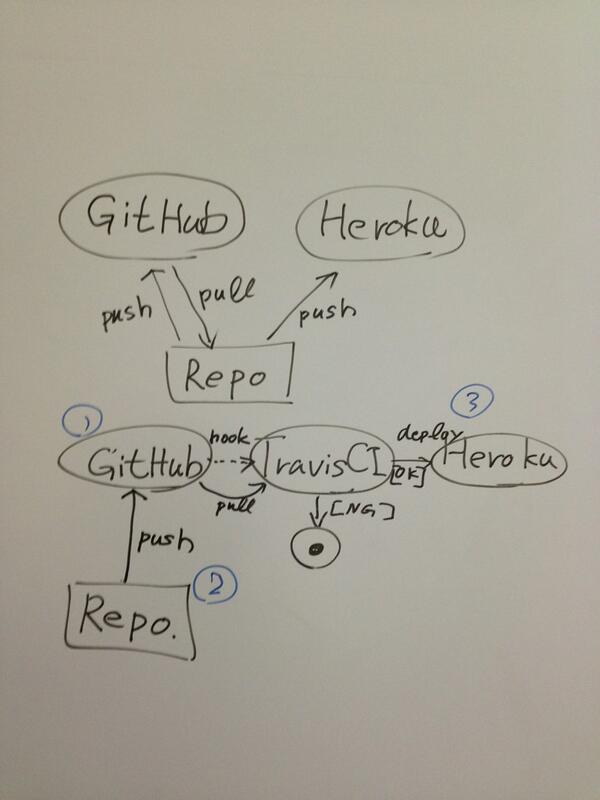 GitHub
Heroku
push
pull
push
Repo
1
3
hook
deploy
GitHub
TravisCI
Heroku
[OK]
pull
[NG]
push
2
Repo.